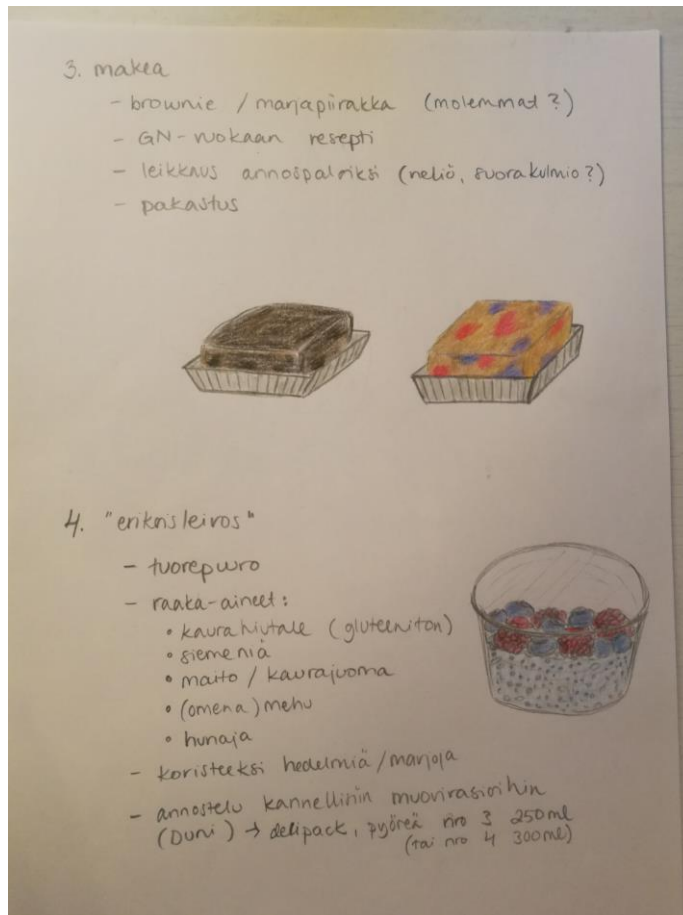 3. makea
- brownie / marjapiirakka (molemmat?)
- GN-vuokaan resepti
- leikkaus annospaloiksi (neliö, suorakulmio?)
- pakastus
4. "erikoisleivos"
- tuorepuuro
- raaka-aineet:
• kaurahiutale (gluteeniton)
• siemeniä
• maito / kaurajuoma
• (omena)mehu
• hunaja
- koristeeksi hedelmiä/marjoja
- annostelu kannellisiin muovirasioihin
(Duni) → delipack, pyöreä nro 3 250ml
(tai nro 4 300ml)